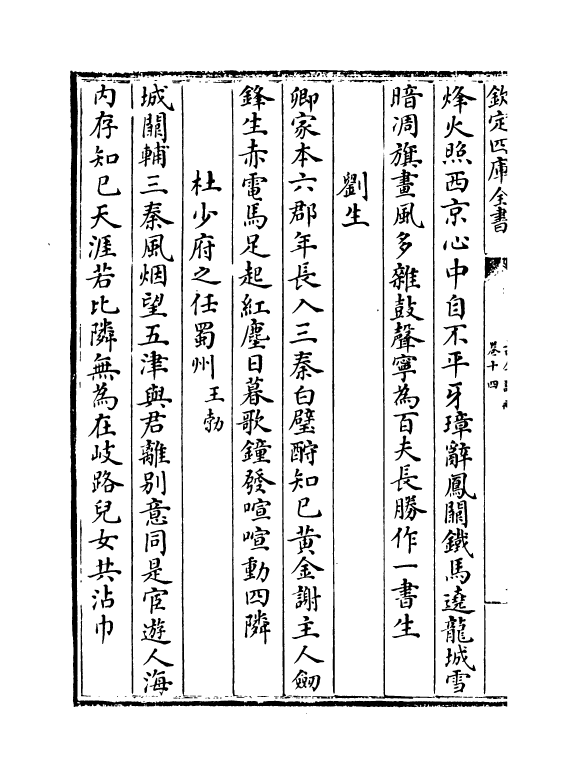 欽定四庫全書
卷十四
烽火照西京心中自不平牙璋辭鳳闕鐵馬遶龍城雪
暗凋旗畫風多雜鼓聲寧為百夫長勝作一書生
劉生
卿家本六郡年長入三秦白璧酧知已黄金謝主人劒
鋒生赤電馬足起紅塵日暮歌鐘發喧喧動四隣
杜少府之任蜀州 王勃
城闕輔三秦風烟望五津與君離别意同是宦遊人海
内存知已天涯若比隣無為在岐路兒女共沾巾